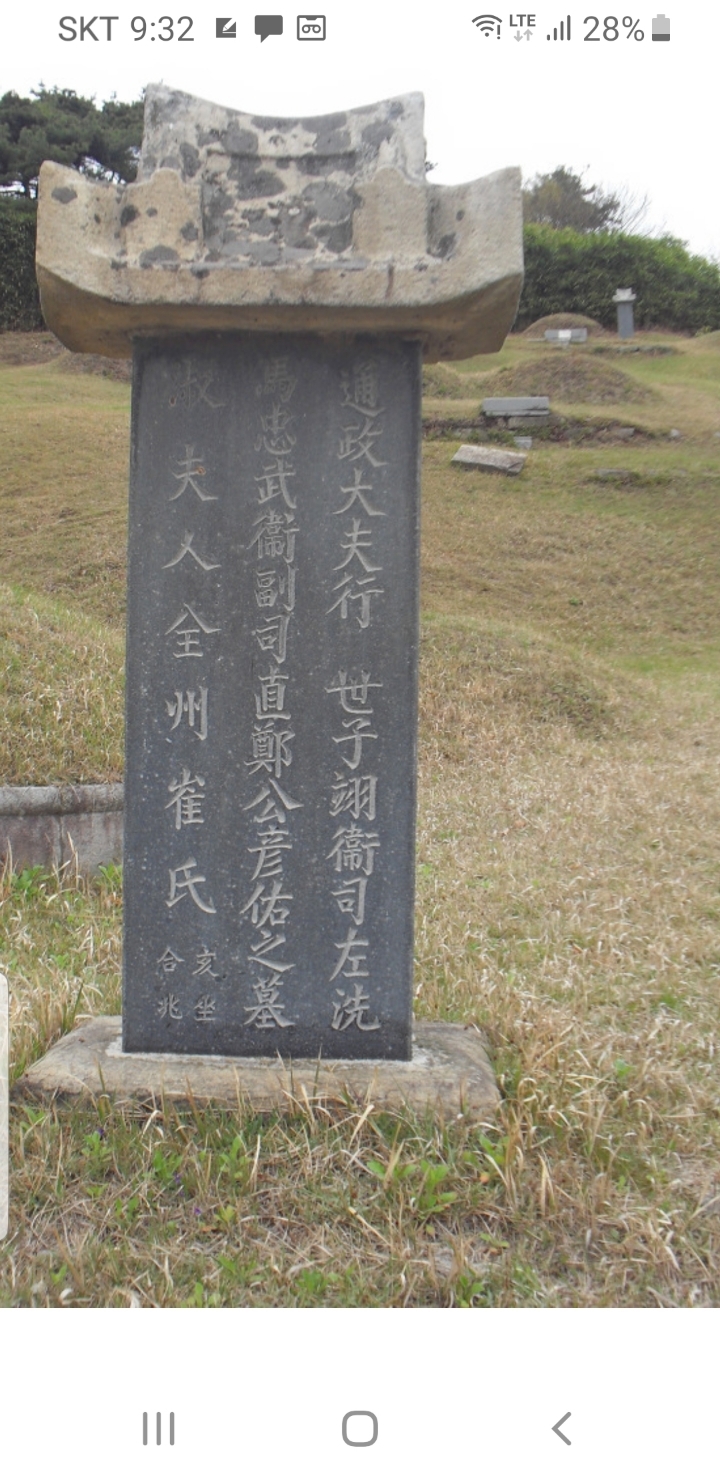 SKT 9:32 LTE 28%
通政大夫行 世子翊衞司左洗
馬忠武衞副司直鄭公彦佑之墓
淑夫人全州崔氏
亥坐
合兆